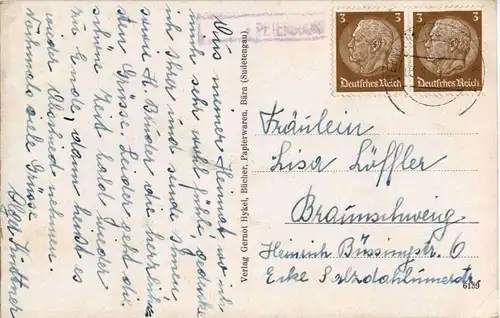 Aus meiner Heimat wo ich
mich sehr wohl fühle, gedenke
ich Ihrer und sende Ihnen
sowie H. Bruder die herzlich
sten Grüsse. Leider geht die
schöne Zeit bald wieder
zu Ende, dann heisst es
wieder Abschied nehmen.
Nochmals viele Grüsse
Kittner
Verlag Gernot Hykel, Bücher, Papierwaren, Bärn (Sudetengau)
3 3
Deutsches Reich
3 3
Deutsches Reich
Fräulein
Lisa Löffler
Braunschweig
Heinrich Büssingstr. 6
Ecke Salzdahlumerstr.
6139